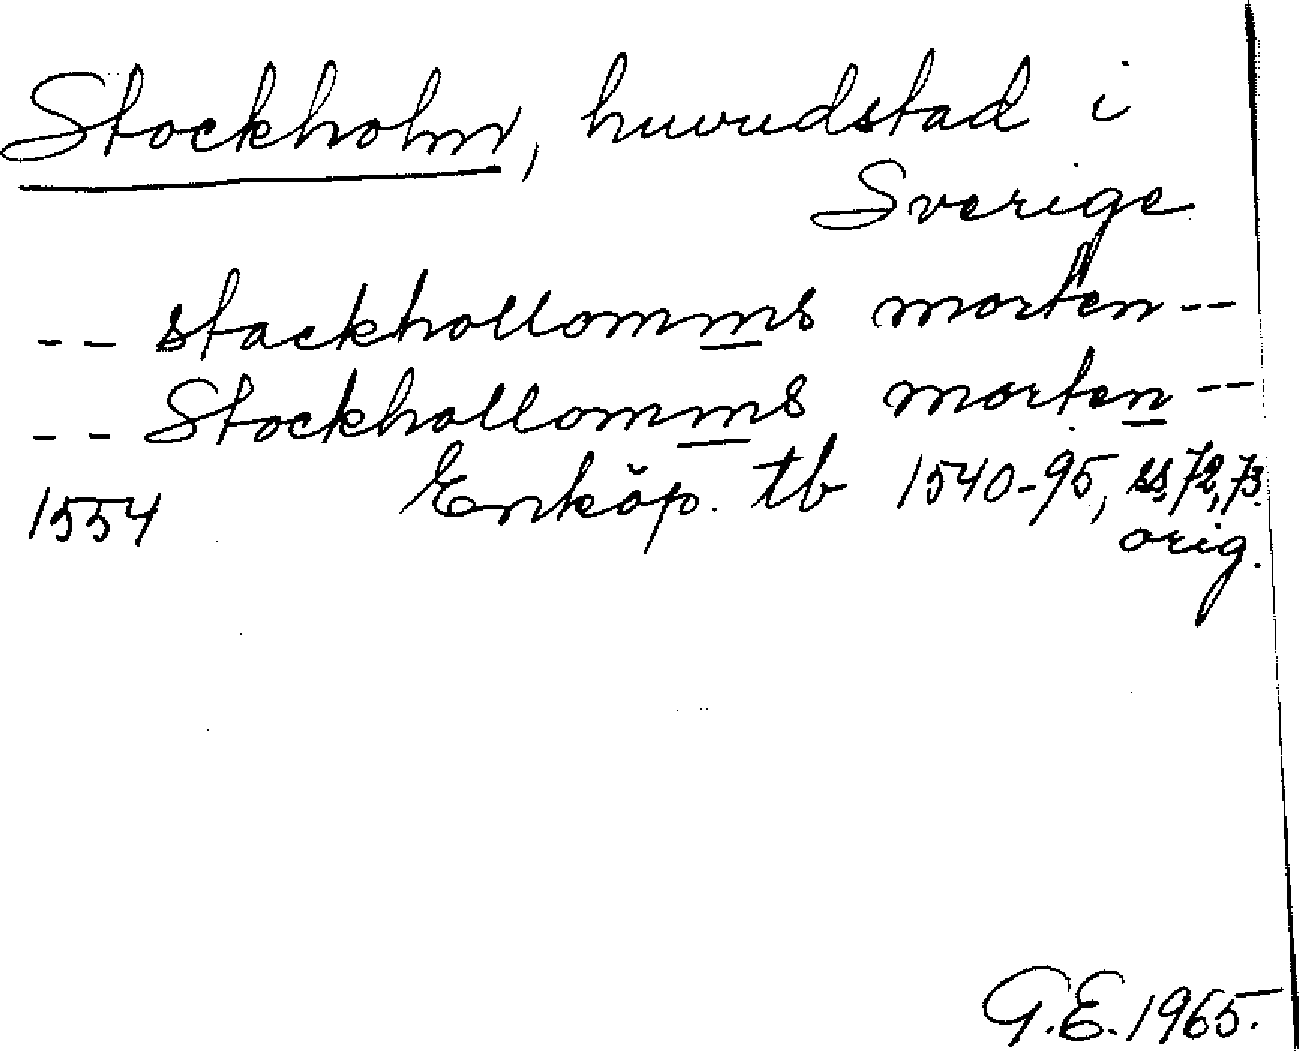 Stockholm, huvudstad i
Sverige
-- stackhollomms morten --
-- Stockhollomms morten --
1554 Enköp. tb 1540-95, ss 72, 73.
orig.
G.E. 1965.